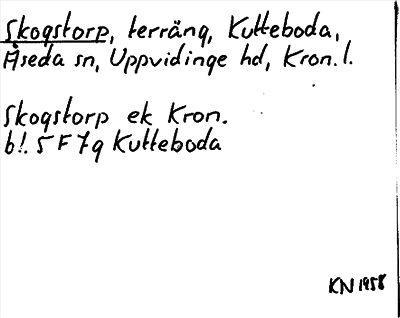 Skogstorp, terräng, Kutteboda,
Åseda sn, Uppvidinge hd, Kron. l.
Skogstorp ek Kron.
bl. 5 F 7g Kutteboda
KN 1958